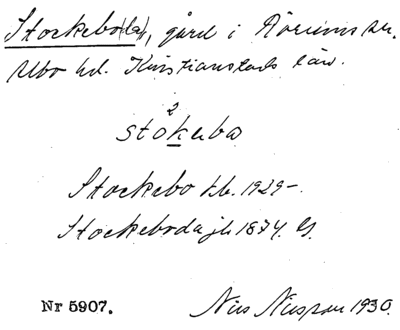 Stockeboda, gård i Rörums sn.
Albo hd. Kristianstads län.
2
stokuba
Stockebo tb. 1929-
Stockeboda jb 1874. G.
Nr 5907. Nils Nilsson 1930.